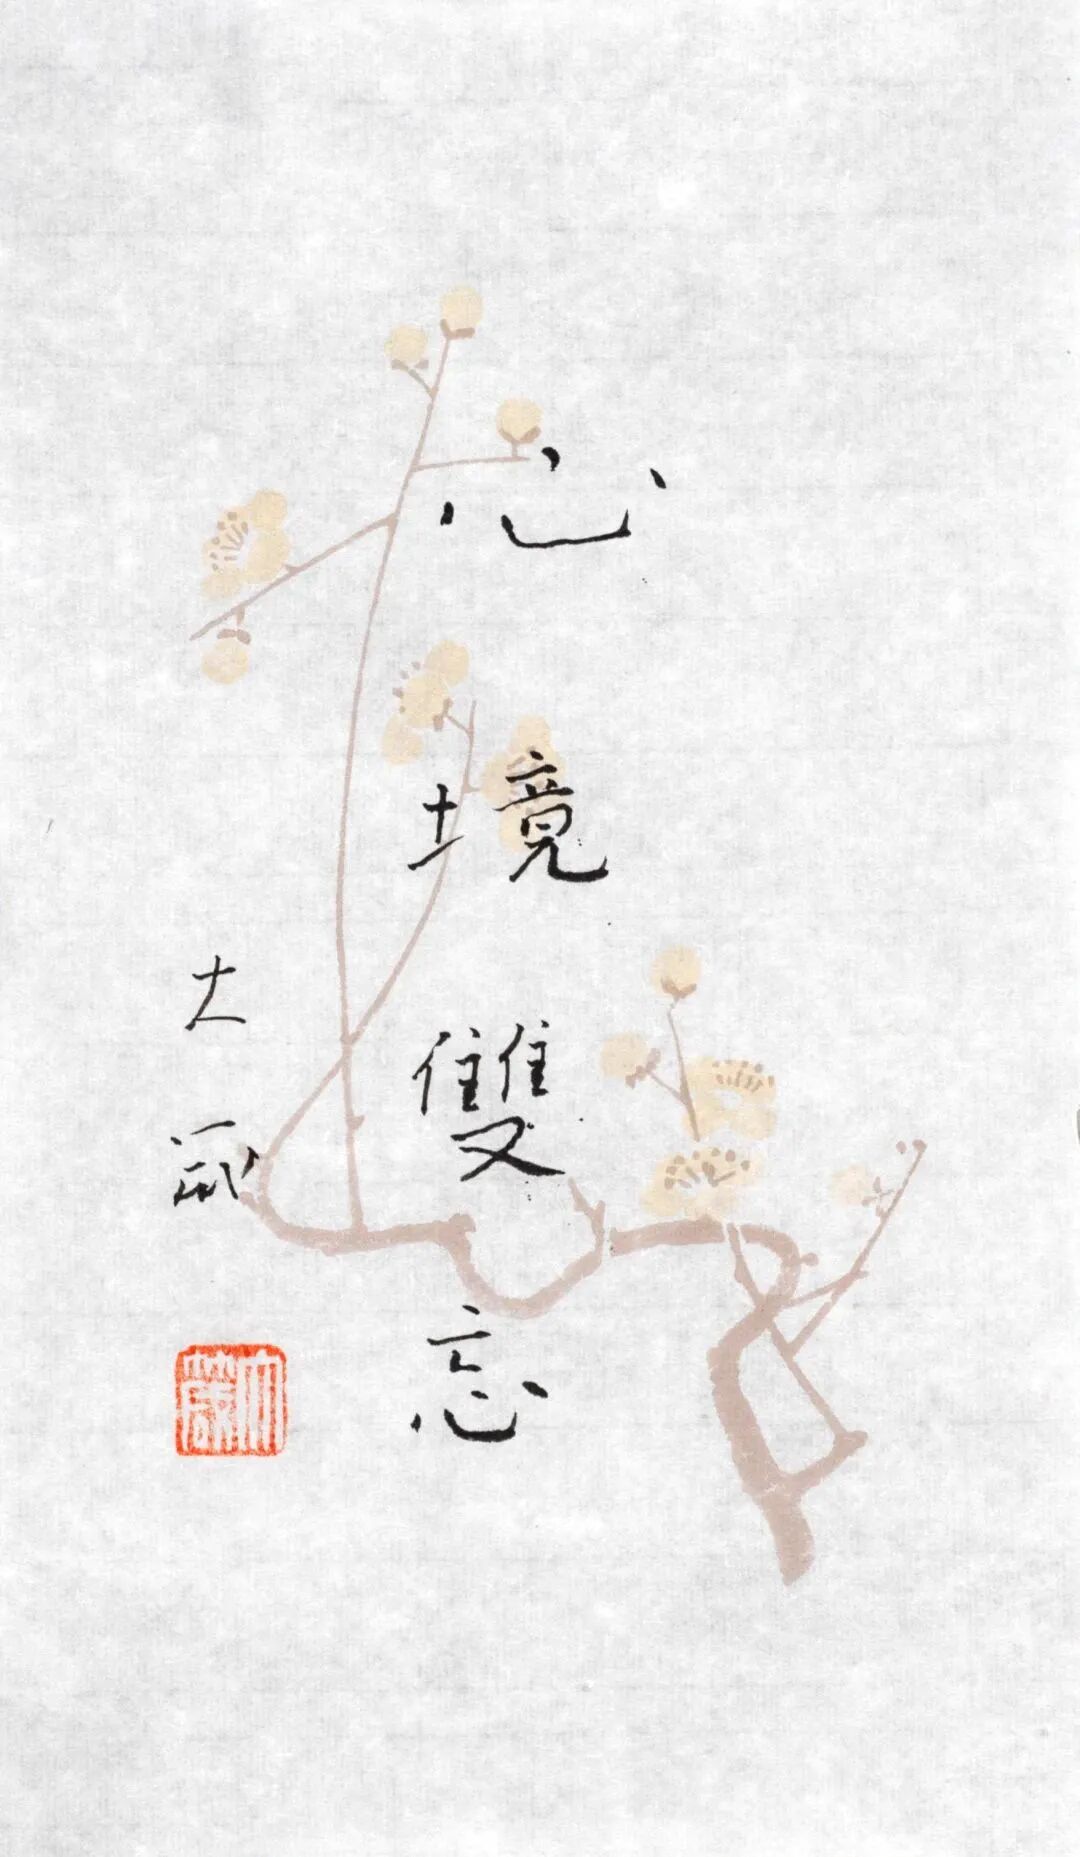 心境雙忘
大